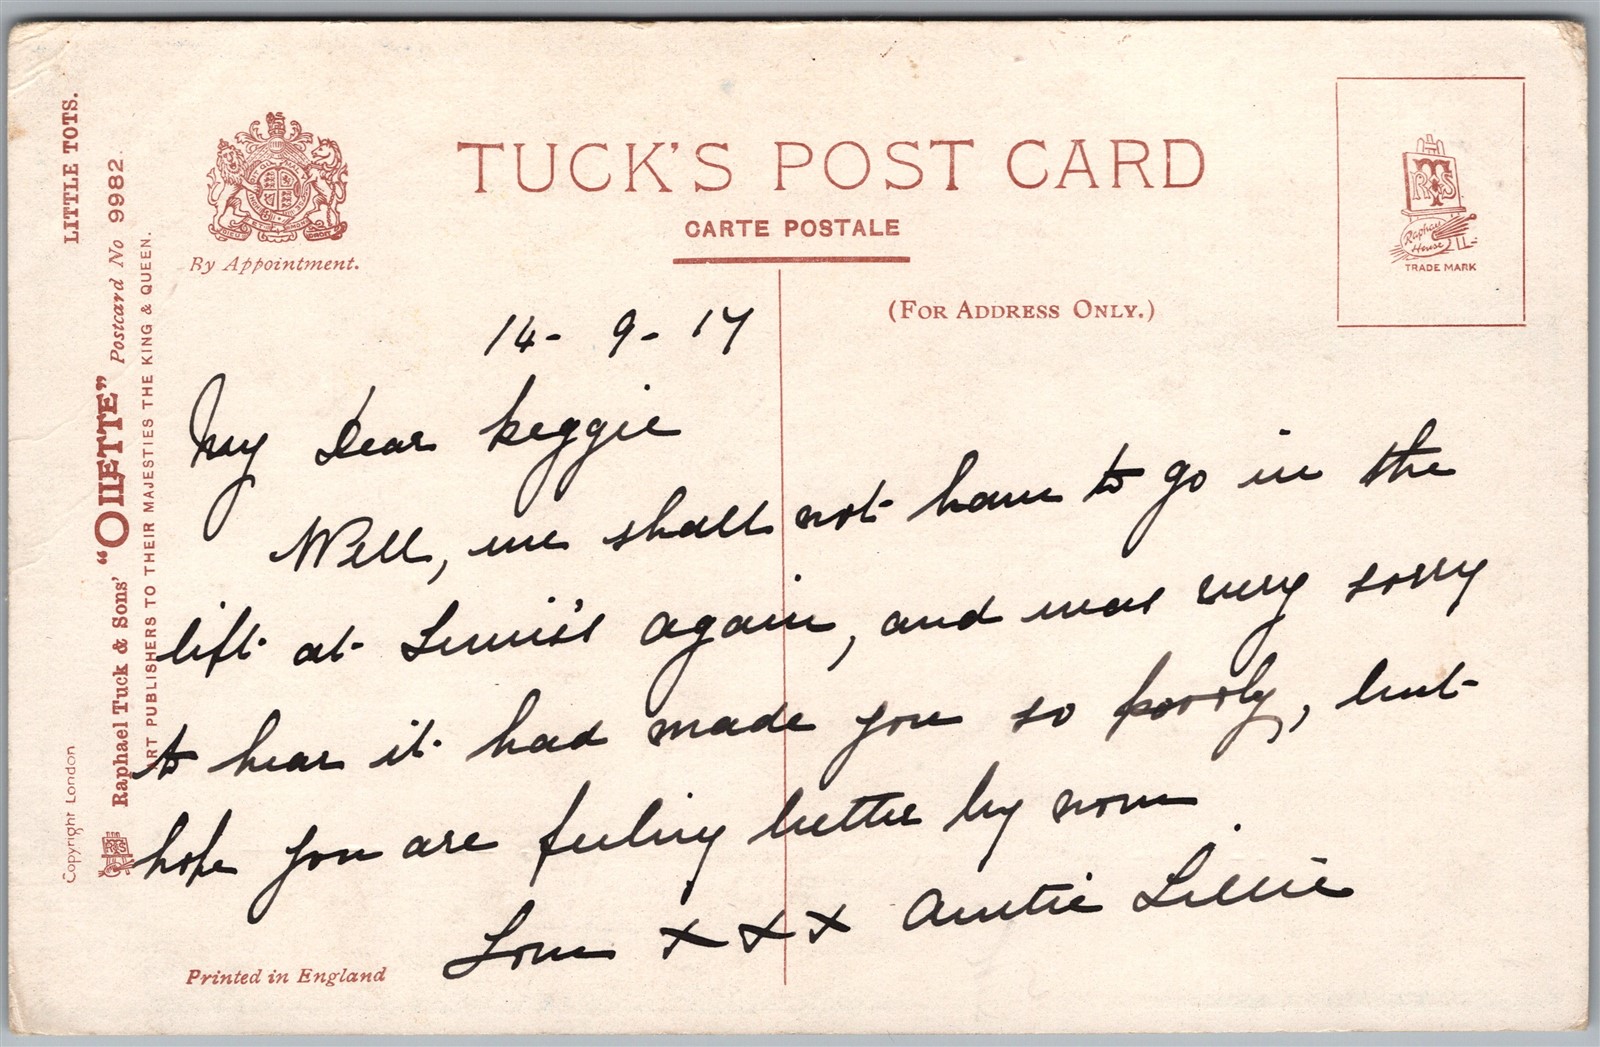 LITTLE TOTS.
Raphael Tuck & Sons' "OILETTE" Postcard No 9982.
ART PUBLISHERS TO THEIR MAJESTIES THE KING & QUEEN.
Copyright London
By Appointment.
TUCK'S POST CARD
CARTE POSTALE
(FOR ADDRESS ONLY.)
RTS
Raphael
House
TRADE MARK
14-9-17
My Dear Reggie
Well, we shall not have to go in the
lift at Lewis's again, and was very sorry
to hear it had made you so poorly, but
hope you are feeling better by now.
Love x x x Auntie Lillie
Printed in England